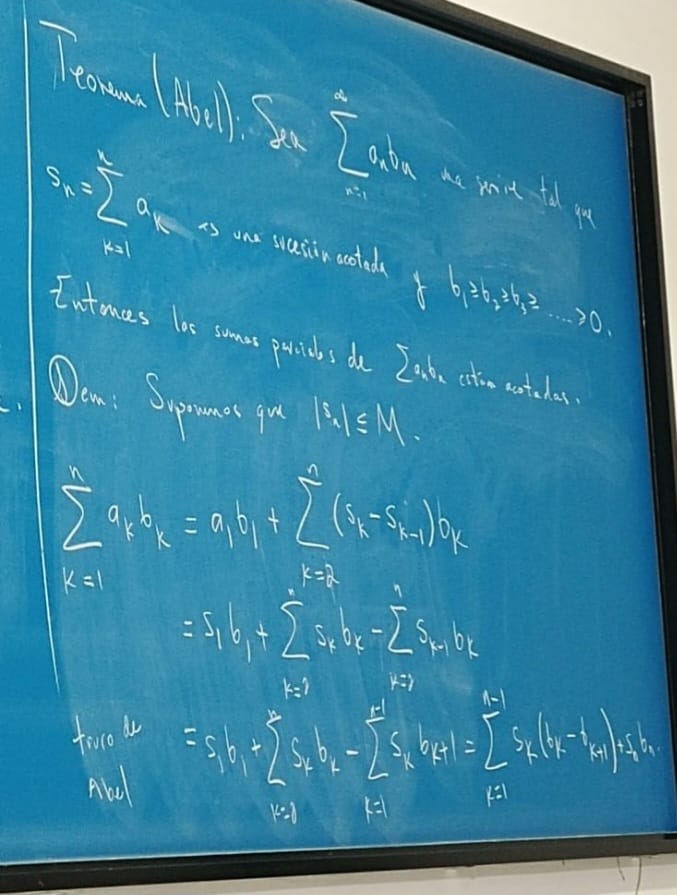 Teorema (Abel): Sea \sum_{n=1}^{\infty} a_n b_n una serie tal que
s_n = \sum_{k=1}^{n} a_k es una sucesión acotada y b_1 ≥ b_2 ≥ b_3 ≥ ..... ≥ 0.
Entonces las sumas parciales de \sum a_n b_n están acotadas.
Dem: Suponemos que |s_n| ≤ M.
\sum_{k=1}^{n} a_k b_k = a_1 b_1 + \sum_{k=2}^{n} (s_k - s_{k-1}) b_k
= s_1 b_1 + \sum_{k=2}^{n} s_k b_k - \sum_{k=2}^{n} s_{k-1} b_k
truco de Abel = s_1 b_1 + \sum_{k=2}^{n} s_k b_k - \sum_{k=1}^{n-1} s_k b_{k+1} = \sum_{k=1}^{n-1} s_k (b_k - b_{k+1}) + s_n b_n.